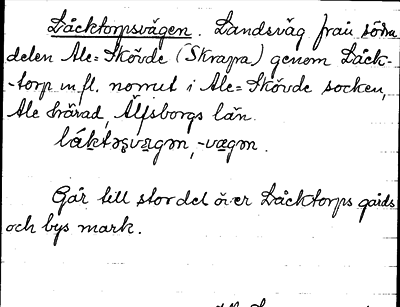 Låcktorpsvägen. Landsväg från södra
delen Ale-Skövde (Skrapa) genom Låck-
-torp m.fl. nomut i Ale-Skövde socken,
Ale härad, Älfsborgs län.
-vægən.
Går till stor del över Låcktorps gårds
och bys mark.